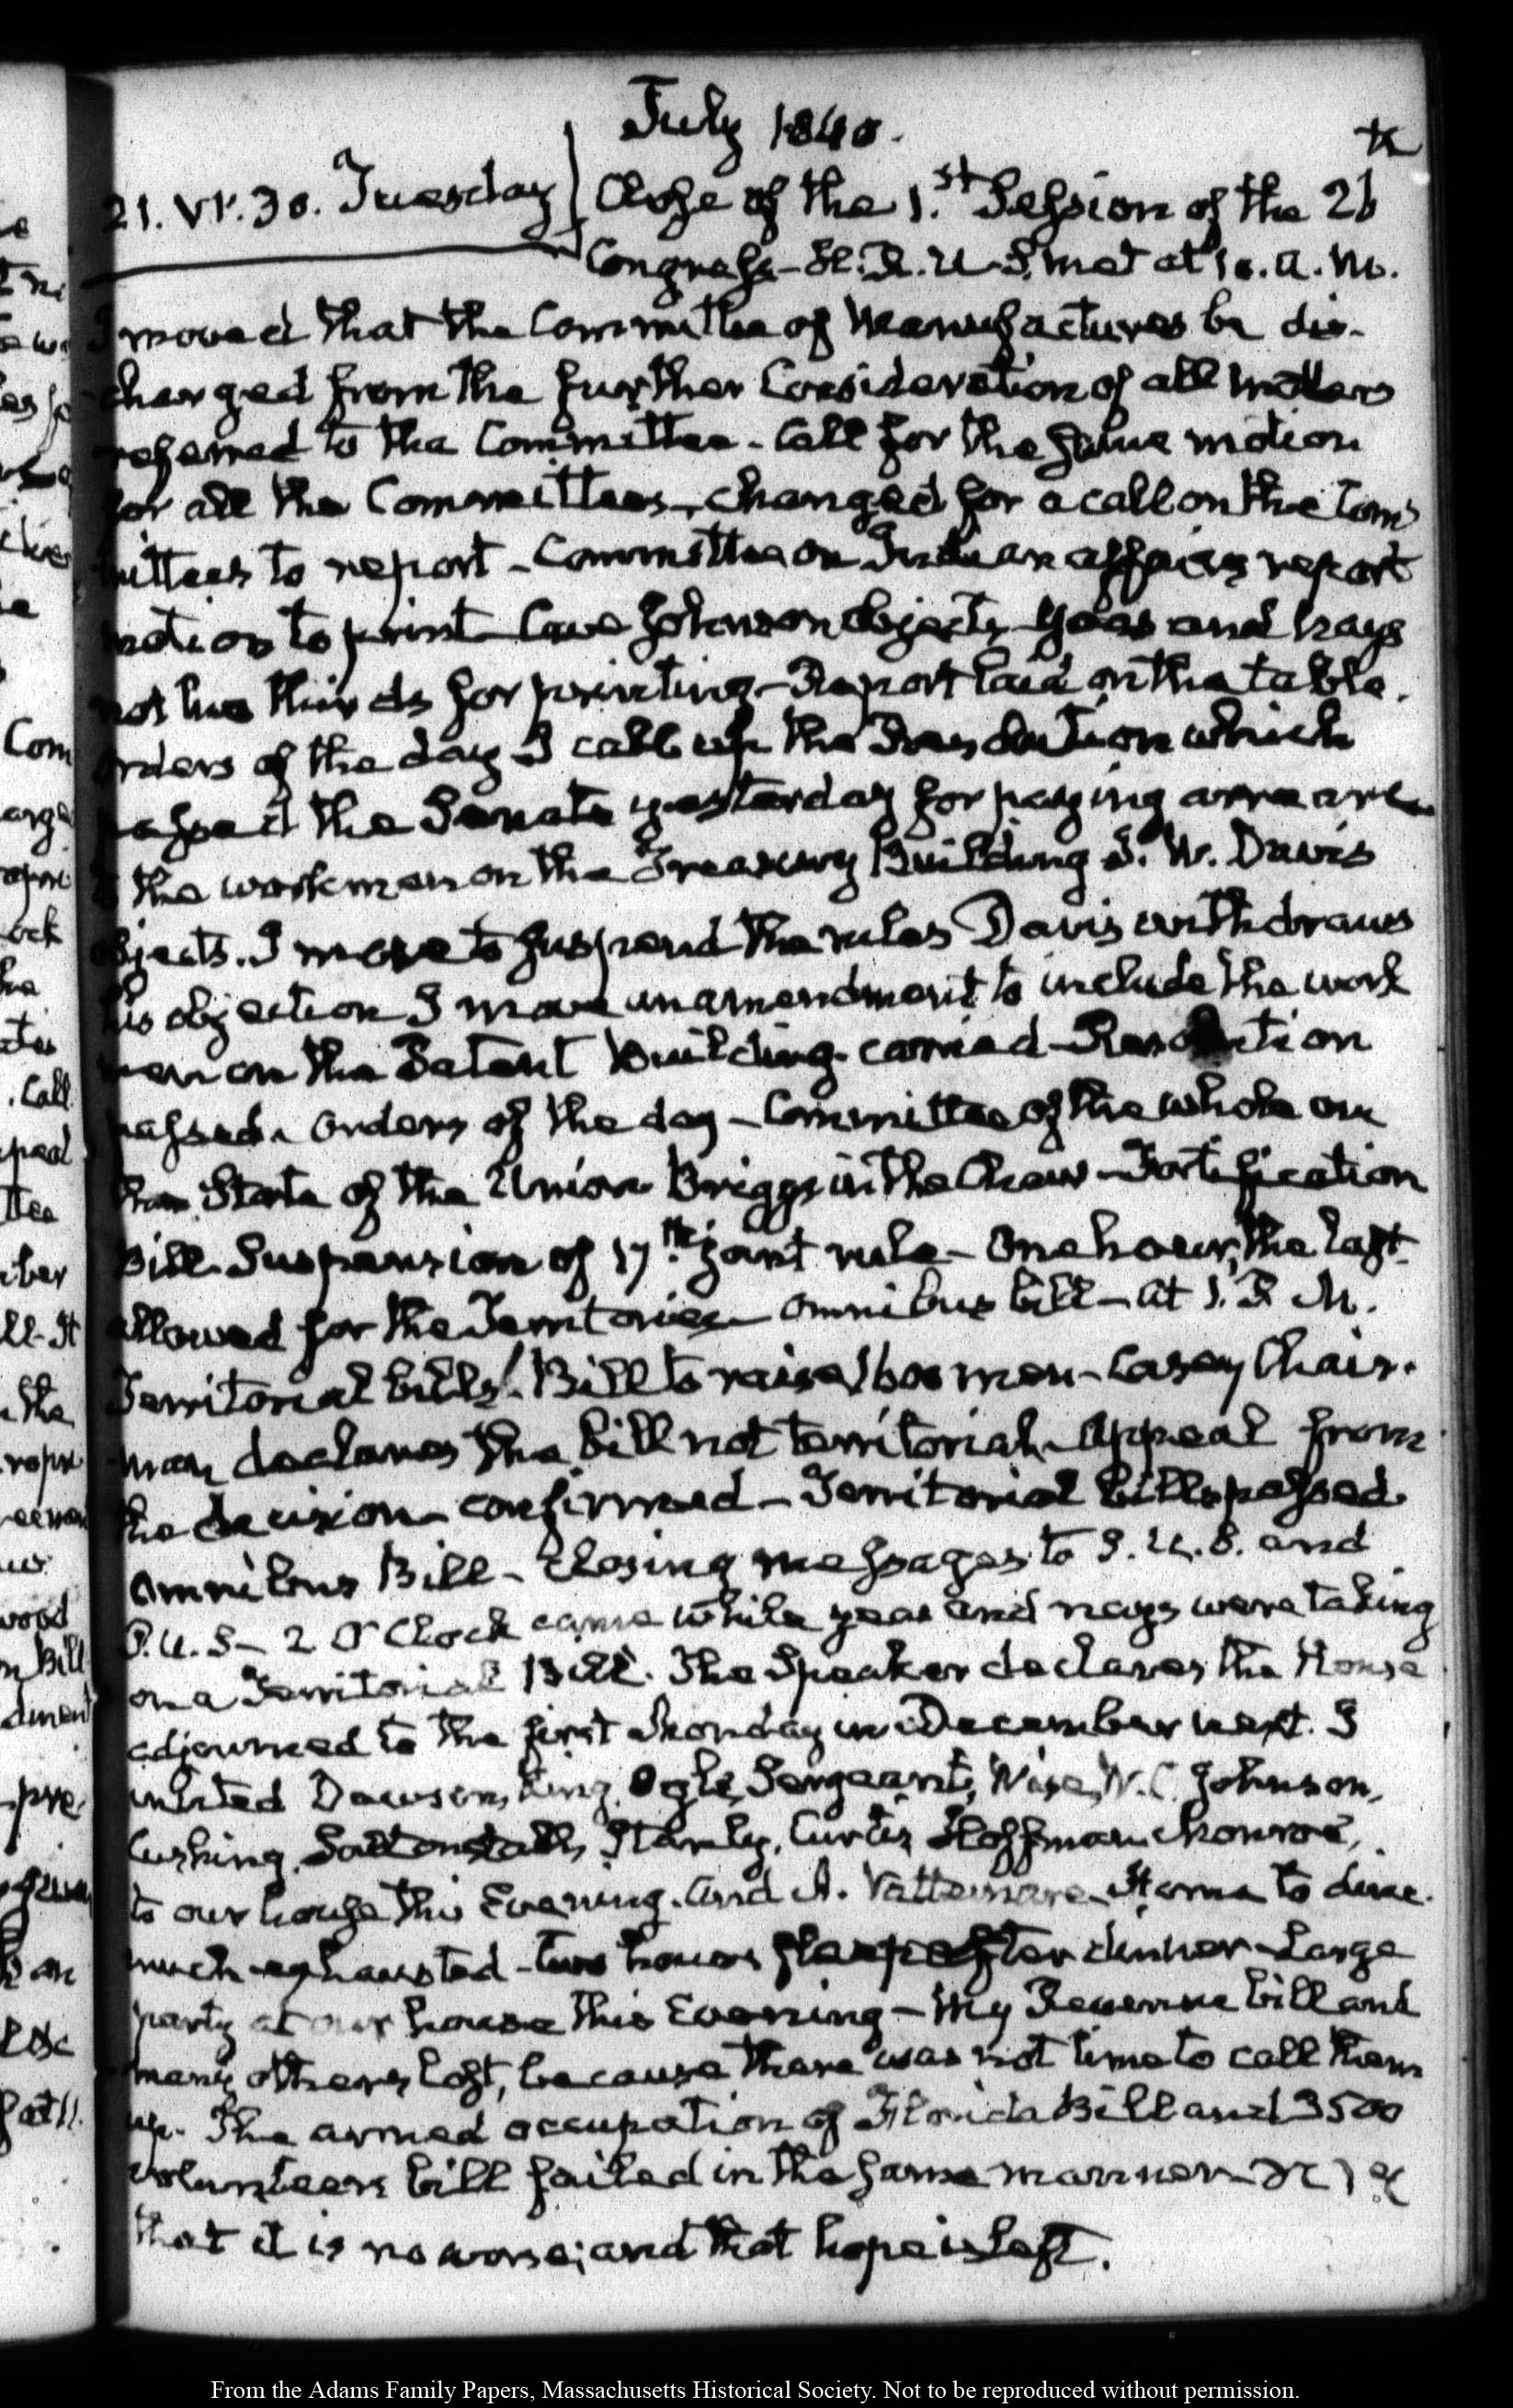 July 1840.
21. VI.30. Tuesday Close of the 1.st Session of the 26
Congress – H. R. U. S. met at 10. A. M.
I moved that the Committee of Manufactures be dis-
charged from the further Consideration of all matters
referred to the Committee – Call for the same motion
for all the Committees – changed for a call on the Com
mittees to report – Committee on Indian affairs report
motion to print – Cave Johnson objects – Yeas and Nays
not two thirds for printing – Report laid on the table.
orders of the day I call up the Resolution which
passed the Senate yesterday for paying arrears
to the workmen on the Treasury Building J. W. Davis
objects. I move to suspend the rules Davis withdraws
his objection I move an amendment to include the work
men on the Patent Building – carried – Resolution
passed – orders of the day – Committee of the whole on
the State of the Union Briggs in the Chair – Fortification
Bill. Suspension of 17.th joint rule – One hour, the last
allowed for the Territories – omnibus bill – at 1. P. M.
Territorial bills. Bill to raise 1600 men – Casey Chair-
man declares the bill not territorial – Appeal from
the decision – confirmed – Territorial bills passed
Omnibus Bill – Closing messages to S. U. S. and
P. U. S – 2 O'Clock came while yeas and nays were taking
on a Territorial Bill. The Speaker declares the House
adjourned to the first Monday in December next. I
invited Dawson, King, Ogle, Sergeant, Wise, W. C. Johnson,
Cushing, Saltonstall, Stanly, Curtis Hoffman Monroe,
to our house this Evening. and A. Vattemare – Home to dine.
much exhausted – two hours sleep after dinner – Large
party at our house this Evening – My Revenue bill and
many others lost, because there was not time to call them
up. The armed occupation of Florida Bill and 3500
volunteers bill failed in the same manner
that it is no worse; and that hope is left.
From the Adams Family Papers, Massachusetts Historical Society. Not to be reproduced without permission.